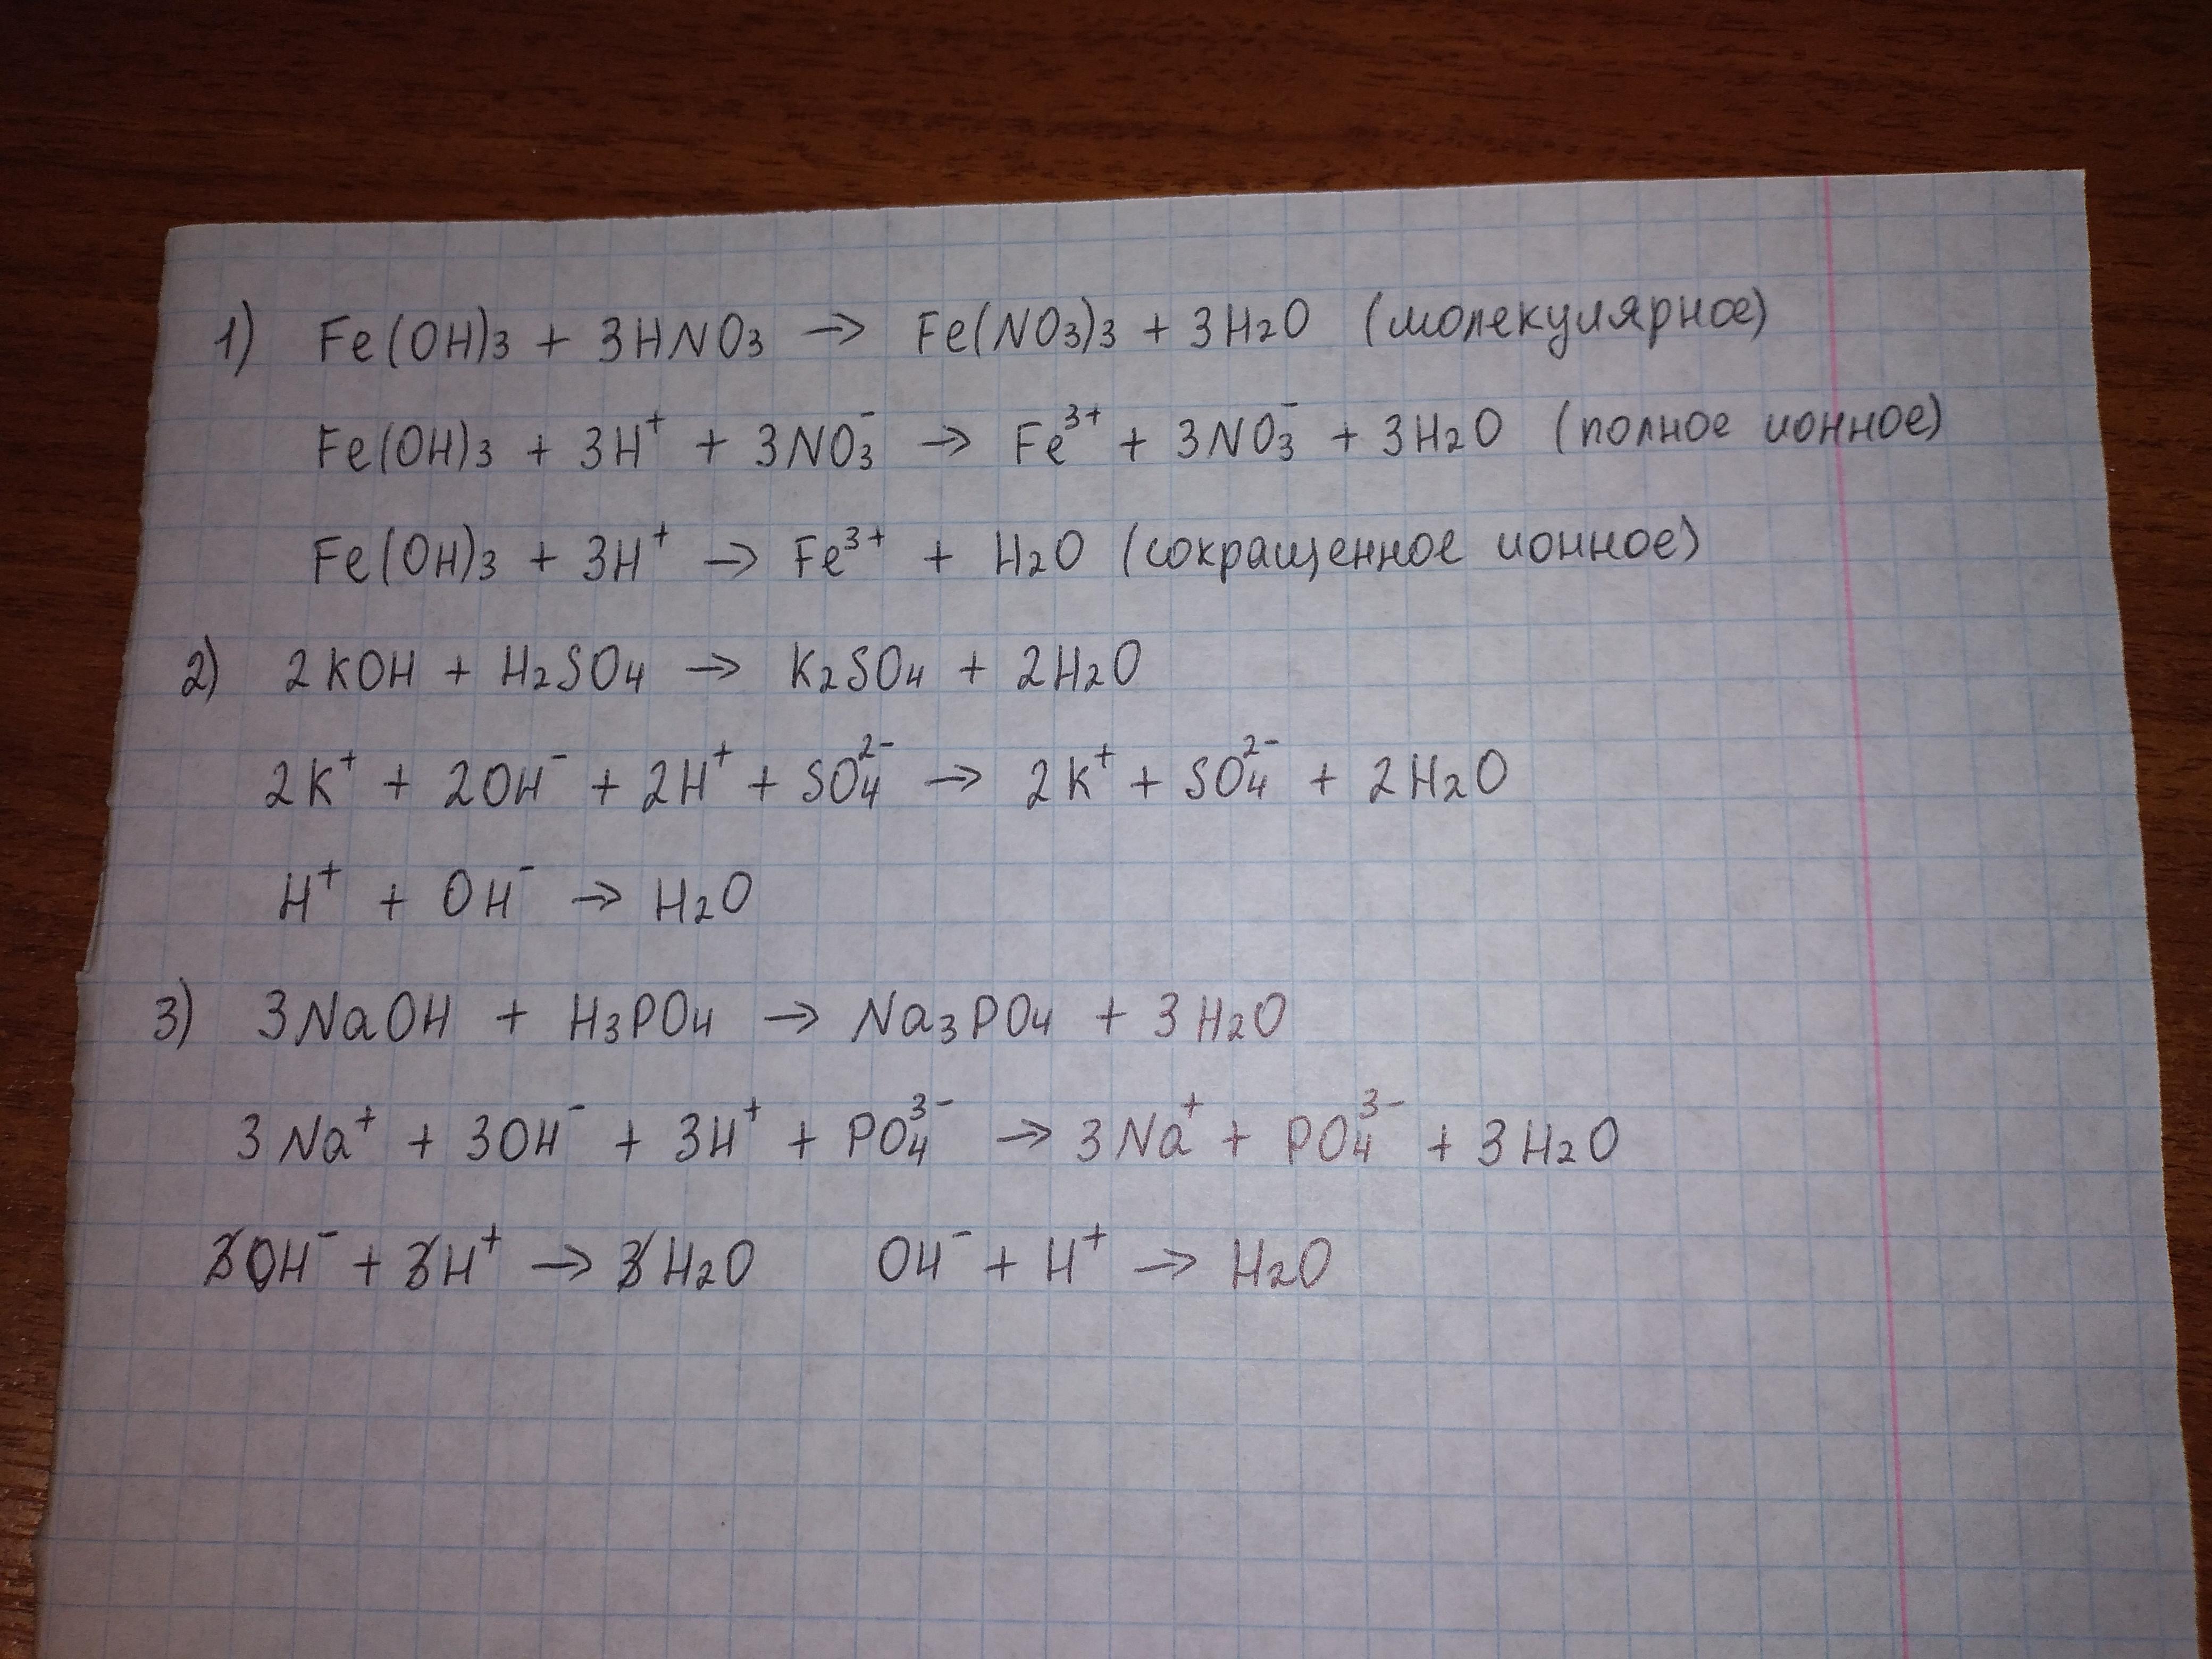 1) Fe(OH)₃ + 3HNO₃ → Fe(NO₃)₃ + 3H₂O (молекулярное)
Fe(OH)₃ + 3H⁺ + 3NO₃⁻ → Fe³⁺ + 3NO₃⁻ + 3H₂O (полное ионное)
Fe(OH)₃ + 3H⁺ → Fe³⁺ + H₂O (сокращенное ионное)
2) 2KOH + H₂SO₄ → K₂SO₄ + 2H₂O
2K⁺ + 2OH⁻ + 2H⁺ + SO₄²⁻ → 2K⁺ + SO₄²⁻ + 2H₂O
H⁺ + OH⁻ → H₂O
3) 3NaOH + H₃PO₄ → Na₃PO₄ + 3H₂O
3Na⁺ + 3OH⁻ + 3H⁺ + PO₄³⁻ → 3Na⁺ + PO₄³⁻ + 3H₂O
3OH⁻ + 3H⁺ → 3H₂O OH⁻ + H⁺ → H₂O